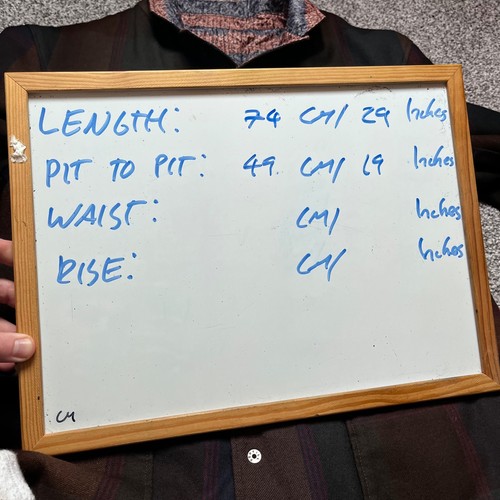 LENGTH: 74 CM/ 29 Inches
PIT TO PIT: 49 CM/ 19 Inches
WAIST: CM/ Inches
RISE: CM/ Inches
CM